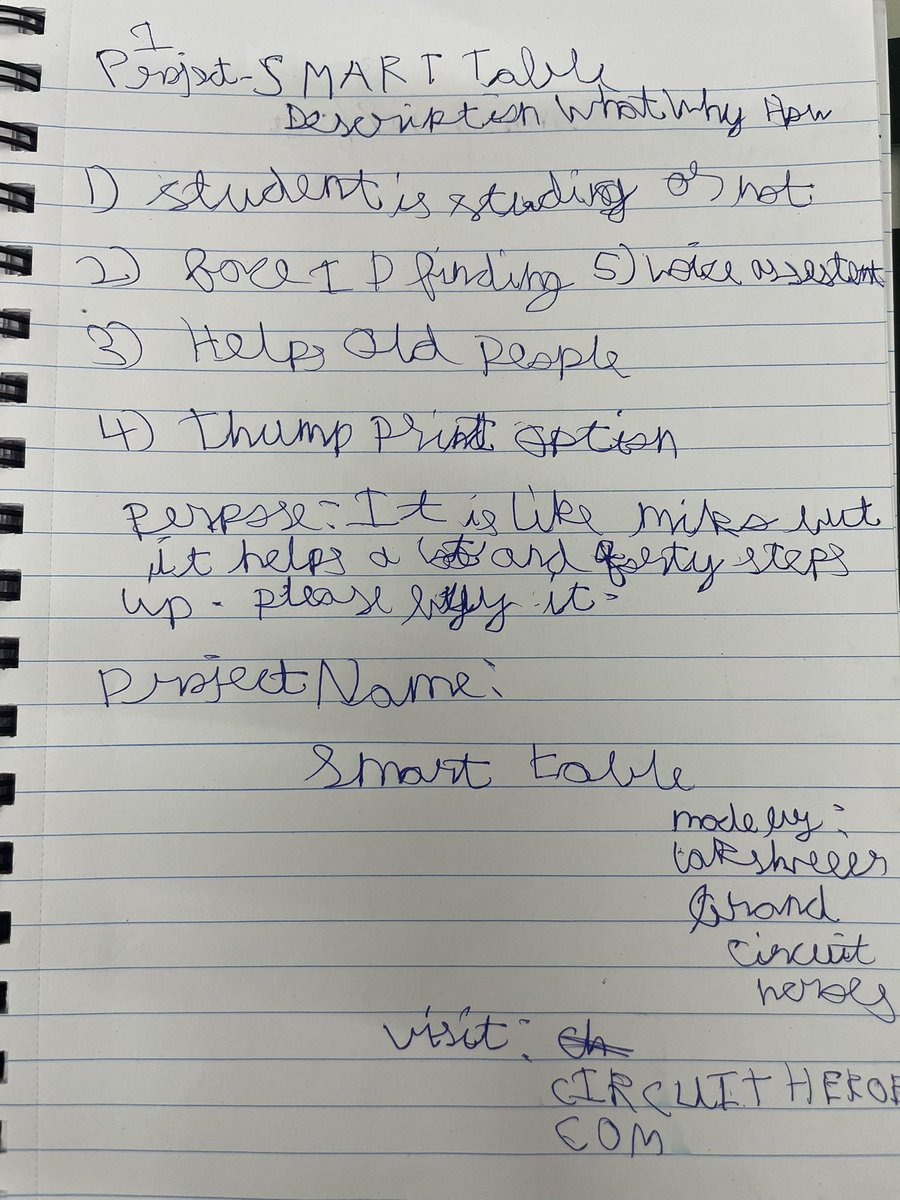 1
Project-SMART Table
Description What Why How
1) student is studing or not
2) Face ID finding 5) voice assestent
3) Helps Old people
4) Thump print option
perpose: It is like miko but
it helps a lot and forty steps
up. please buy it:
project Name:
Smart table
made by:
Lakshreeers
Brand
circuit
heroes
visit:
CIRCUITHEROE
COM